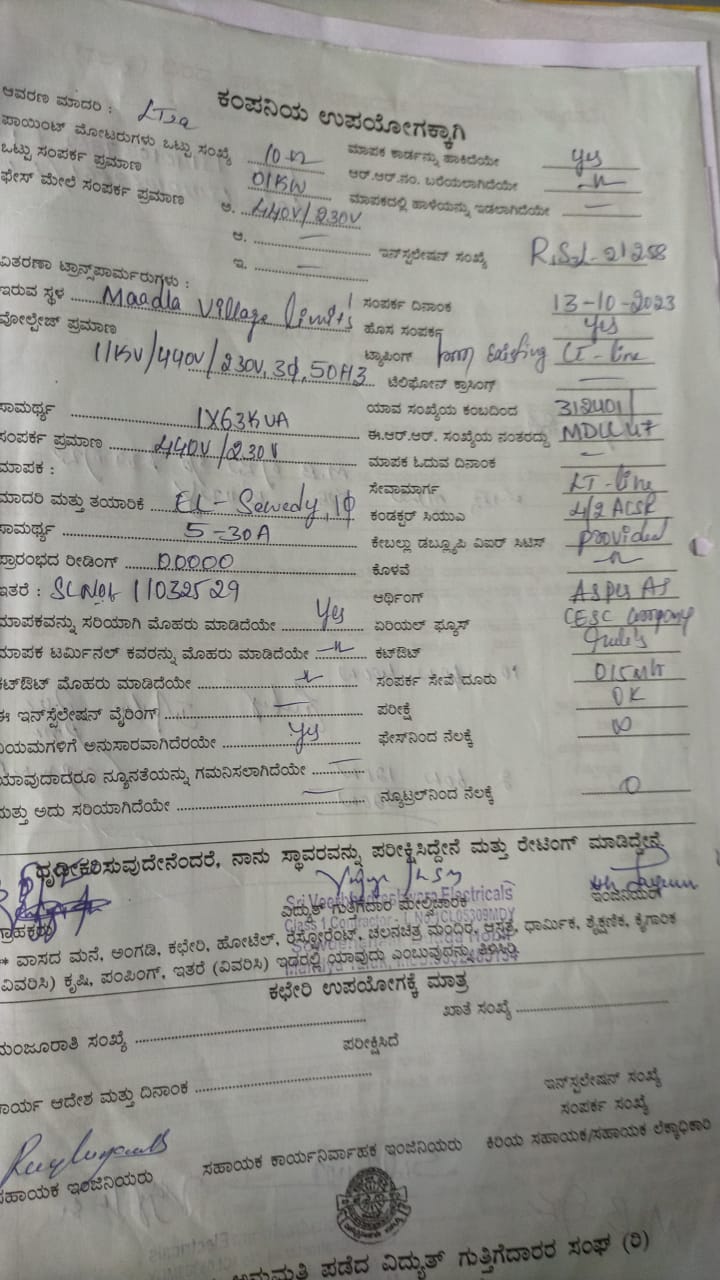 ಕಂಪನಿಯ ಉಪಯೋಗಕ್ಕಾಗಿ
ಆವರಣ ಮಾದರಿ : LT2a
ಪಾಯಿಂಟ್ ಮೋಟರುಗಳು ಒಟ್ಟು ಸಂಖ್ಯೆ 10 ಮಾಪಕ ಕಾರ್ಡನ್ನು ಹಾಕಿದೆಯೇ yes
ಒಟ್ಟು ಸಂಪರ್ಕ ಪ್ರಮಾಣ 01KW ಆರ್.ಆರ್.ನಂ. ಬರೆಯಲಾಗಿದೆಯೇ
ಫೇಸ್ ಮೇಲೆ ಸಂಪರ್ಕ ಪ್ರಮಾಣ ಅ. 440V/230V ಮಾಪಕದಲ್ಲಿ ಹಾಳೆಯನ್ನು ಇಡಲಾಗಿದೆಯೇ —
ಆ. — ಇನ್‌ಸ್ಟಲೇಷನ್ ಸಂಖ್ಯೆ 21258
ಇ. —
ವಿತರಣಾ ಟ್ರಾನ್ಸ್‌ಪಾರ್ಮರುಗಳು :
ಇರುವ ಸ್ಥಳ Maadla Village limits ಸಂಪರ್ಕ ದಿನಾಂಕ 13-10-2023
ವೋಲ್ಟೇಜ್ ಪ್ರಮಾಣ ಹೊಸ ಸಂಪರ್ಕ yes
11KV/440V/230V, 3ϕ, 50HZ ಟ್ಯಾಪಿಂಗ್ from Existing LT-line
ಟೆಲಿಫೋನ್ ಕ್ರಾಸಿಂಗ್ —
ಸಾಮರ್ಥ್ಯ 1X63KVA ಯಾವ ಸಂಖ್ಯೆಯ ಕಂಬದಿಂದ
ಸಂಪರ್ಕ ಪ್ರಮಾಣ 440V/230V ಈ.ಆರ್.ಆರ್. ಸಂಖ್ಯೆಯ ನಂತರದ್ದು
ಮಾಪಕ : ಮಾಪಕ ಓದುವ ದಿನಾಂಕ —
ಮಾದರಿ ಮತ್ತು ತಯಾರಿಕೆ EL-Sewedy, 1ϕ ಸೇವಾಮಾರ್ಗ LT-line
ಸಾಮರ್ಥ್ಯ 5-30A ಕಂಡಕ್ಟರ್ ಸಿಯುಎ 2 ACSR
ಪ್ರಾರಂಭದ ರೀಡಿಂಗ್ 00000 ಕೇಬಲ್ಲು ಡಬ್ಲ್ಯೂಪಿ ವಿಐರ್ ಸಿಟಿಸ್ provided
ಇತರೆ : SLNo: 11032529 ಕೊಳವೆ
ಆರ್ಥಿಂಗ್ As per As
ಮಾಪಕವನ್ನು ಸರಿಯಾಗಿ ಮೊಹರು ಮಾಡಿದೆಯೇ Yes ಏರಿಯಲ್ ಫ್ಯೂಸ್ CESC Company
ಮಾಪಕ ಟರ್ಮಿನಲ್ ಕವರನ್ನು ಮೊಹರು ಮಾಡಿದೆಯೇ ಕಟ್‌ಔಟ್ rule's
ಕಟ್‌ಔಟ್ ಮೊಹರು ಮಾಡಿದೆಯೇ ಸಂಪರ್ಕ ಸೇವೆ ದೂರು 015Mtr
ಈ ಇನ್‌ಸ್ಟಲೇಷನ್ ವೈರಿಂಗ್ — ಪರೀಕ್ಷೆ OK
ನಿಯಮಗಳಿಗೆ ಅನುಸಾರವಾಗಿದೆರಯೇ yes ಫೇಸ್‌ನಿಂದ ನೆಲಕ್ಕೆ ∞
ಯಾವುದಾದರೂ ನ್ಯೂನತೆಯನ್ನು ಗಮನಿಸಲಾಗಿದೆಯೇ —
ಮತ್ತು ಅದು ಸರಿಯಾಗಿದೆಯೇ — ನ್ಯೂಟ್ರಲ್‌ನಿಂದ ನೆಲಕ್ಕೆ 0
ಧೃಢೀಕರಿಸುವುದೇನೆಂದರೆ, ನಾನು ಸ್ಥಾವರವನ್ನು ಪರೀಕ್ಷಿಸಿದ್ದೇನೆ ಮತ್ತು ರೇಟಿಂಗ್ ಮಾಡಿದ್ದೇನೆ
ಗ್ರಾಹಕರು ವಿದ್ಯುತ್ ಗುತ್ತಿಗೆದಾರ ಮೇಲ್ವಿಚಾರಕ ಇಂಜಿನಿಯರ್
Electricals
Class 1 Contractor
** ವಾಸದ ಮನೆ, ಅಂಗಡಿ, ಕಛೇರಿ, ಹೋಟೆಲ್, ರೆಸ್ಟೋರೆಂಟ್, ಚಲನಚಿತ್ರ ಮಂದಿರ, ಆಸ್ಪತ್ರೆ, ಧಾರ್ಮಿಕ, ಶೈಕ್ಷಣಿಕ, ಕೈಗಾರಿಕ
(ವಿವರಿಸಿ) ಕೃಷಿ, ಪಂಪಿಂಗ್, ಇತರೆ (ವಿವರಿಸಿ) ಇದರಲ್ಲಿ ಯಾವುದು ಎಂಬುವುದನ್ನು ತಿಳಿಸಿರಿ
ಕಛೇರಿ ಉಪಯೋಗಕ್ಕೆ ಮಾತ್ರ
ಮಂಜೂರಾತಿ ಸಂಖ್ಯೆ ಖಾತೆ ಸಂಖ್ಯೆ
ಪರೀಕ್ಷಿಸಿದೆ
ಕಾರ್ಯ ಆದೇಶ ಮತ್ತು ದಿನಾಂಕ ಇನ್‌ಸ್ಟಲೇಷನ್ ಸಂಖ್ಯೆ
ಸಂಪರ್ಕ ಸಂಖ್ಯೆ
ಸಹಾಯಕ ಇಂಜಿನಿಯರು ಸಹಾಯಕ ಕಾರ್ಯನಿರ್ವಾಹಕ ಇಂಜಿನಿಯರು ಕಿರಿಯ ಸಹಾಯಕ/ಸಹಾಯಕ ಲೆಕ್ಕಾಧಿಕಾರಿ
ಅನುಮತಿ ಪಡೆದ ವಿದ್ಯುತ್ ಗುತ್ತಿಗೆದಾರರ ಸಂಘ (ರಿ)